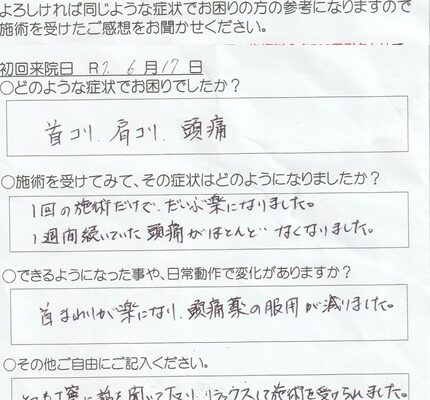 よろしければ同じような症状でお困りの方の参考になりますので
施術を受けたご感想をお聞かせください。
初回来院日 R7. 6月17日
○どのような症状でお困りでしたか?
首コリ、肩コリ、頭痛
○施術を受けてみて、その症状はどのようになりましたか?
1回の施術だけで、だいぶ楽になりました。
1週間続いていた頭痛がほとんどなくなりました。
○できるようになった事や、日常動作で変化がありますか?
首まわりが楽になり、頭痛薬の服用が減りました。
○その他ご自由にご記入ください。
とても丁寧に話を聞いて下さり、リラックスして施術を受けられました。